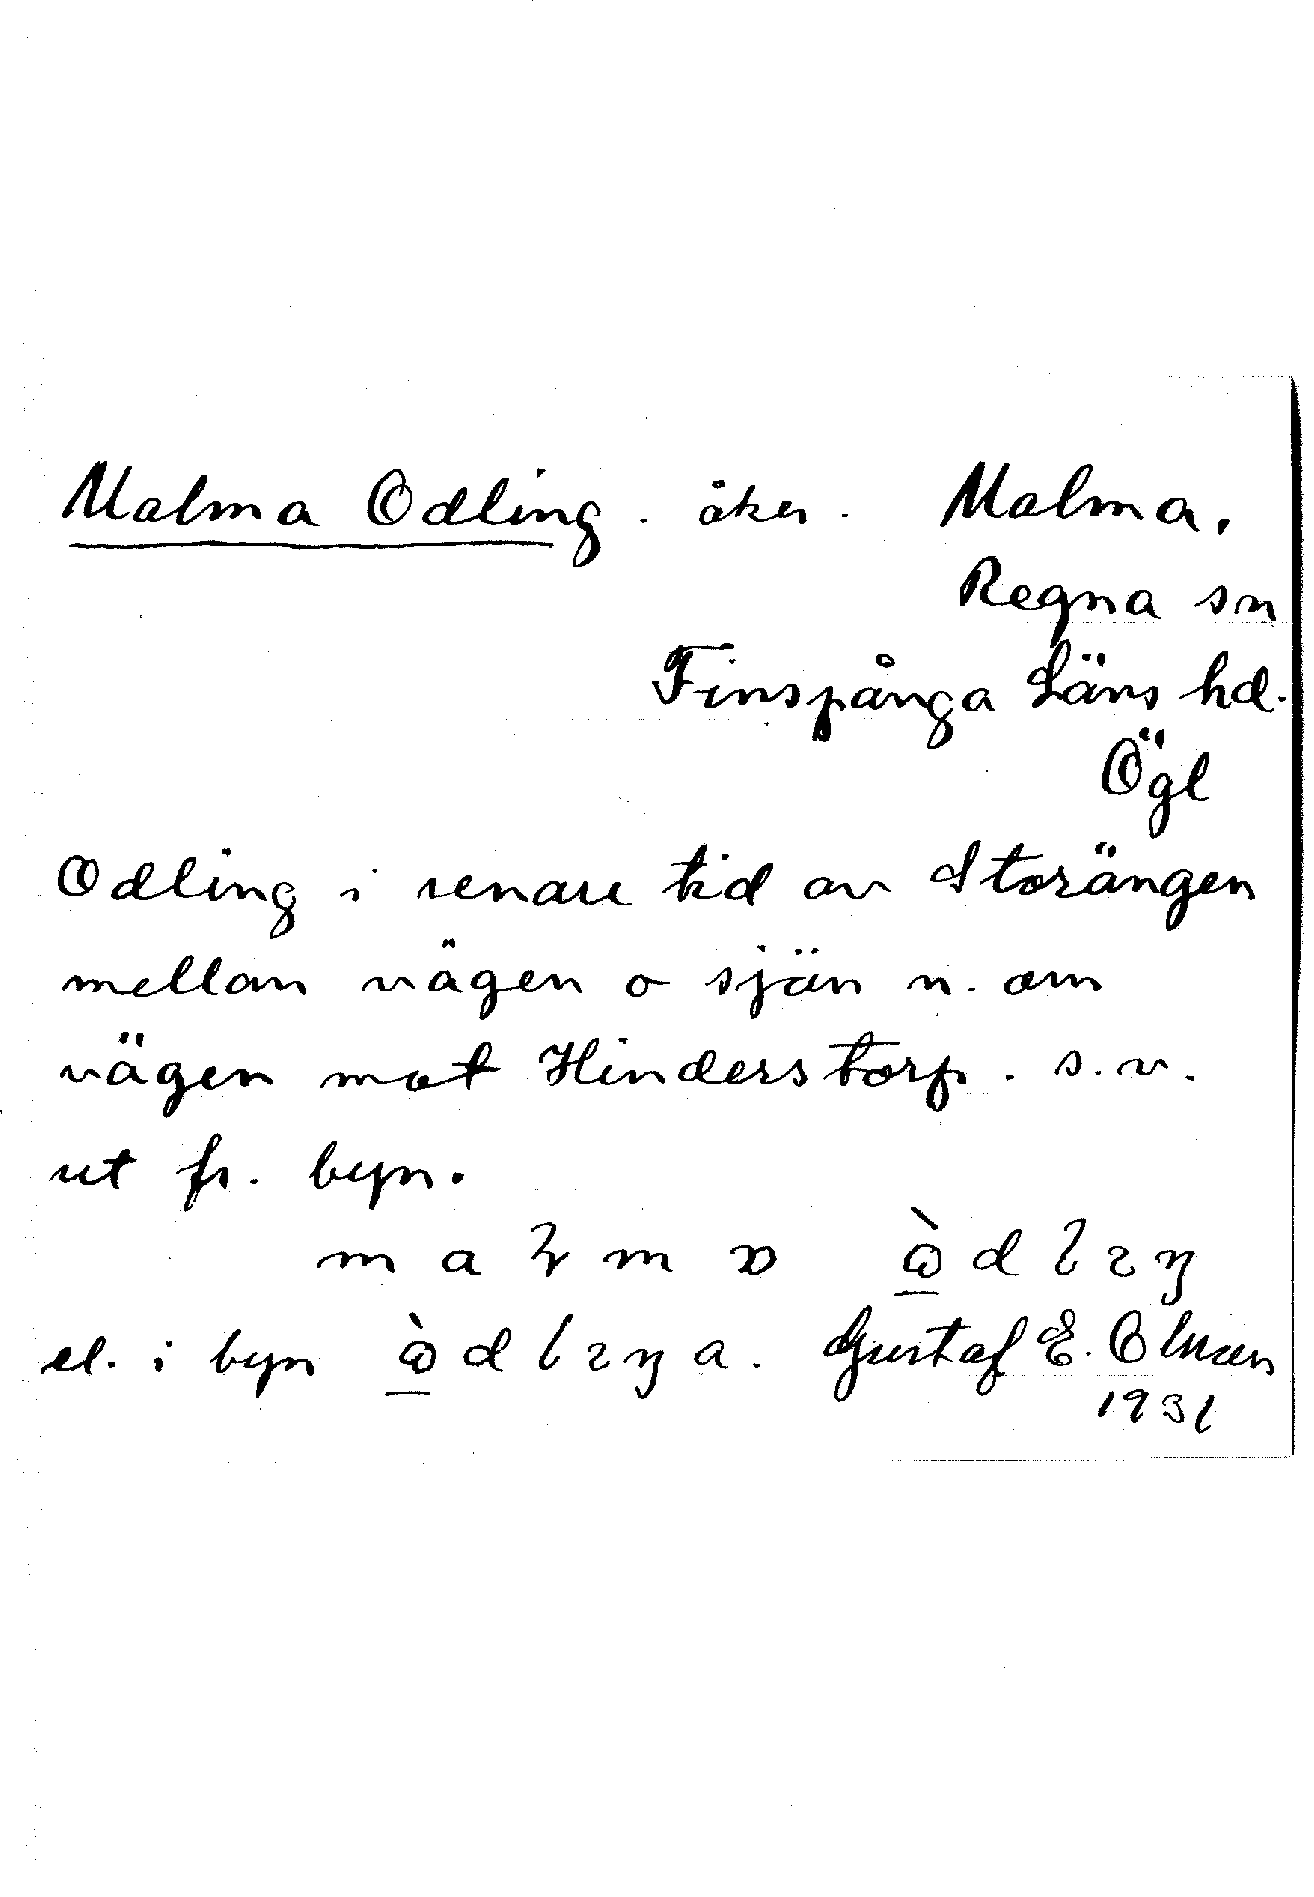 Malma Odling . åker . Malma.
Regna sn
Finspånga Läns hd.
Ögl
Odling i senare tid av Storängen
mellan vägen o sjön n. om
vägen mot Hinderstorp . s.v.
ut fr. byn.
el. i byn
Gustaf E.
1931